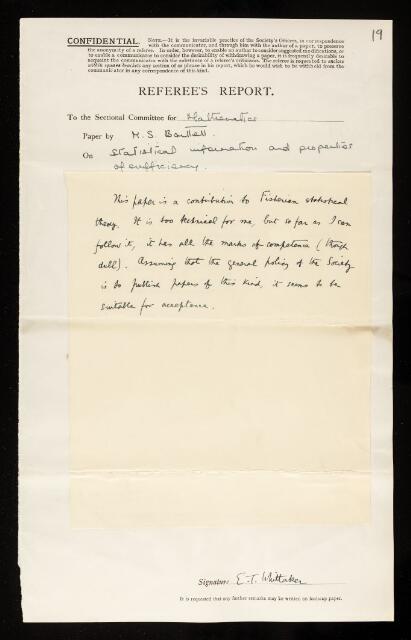 19
CONFIDENTIAL. NOTE.—It is the invariable practice of the Society's Officers, in correspondence
with the communicator, and through him with the author of a paper, to preserve
the anonymity of a referee. In order, however, to enable an author to consider suggested modifications, or
to enable a communicator to consider the desirability of withdrawing a paper, it is frequently desirable to
acquaint the communicator with the substance of a referee's criticisms. The referee is requested to enclose
within square brackets any section of or phrase in his report, which he would wish to be withheld from the
communicator in any correspondence of this kind.
REFEREE'S REPORT.
To the Sectional Committee for Mathematics
Paper by M. S. Bartlett.
On Statistical information and properties
of sufficiency.
This paper is a contribution to Fisherian statistical
theory. It is too technical for me, but so far as I can
follow it, it has all the marks of competence (though
dull). Assuming that the general policy of the Society
is to publish papers of this kind, it seems to be
suitable for acceptance.
Signature E. T. Whittaker
It is requested that any further remarks may be written on foolscap paper.